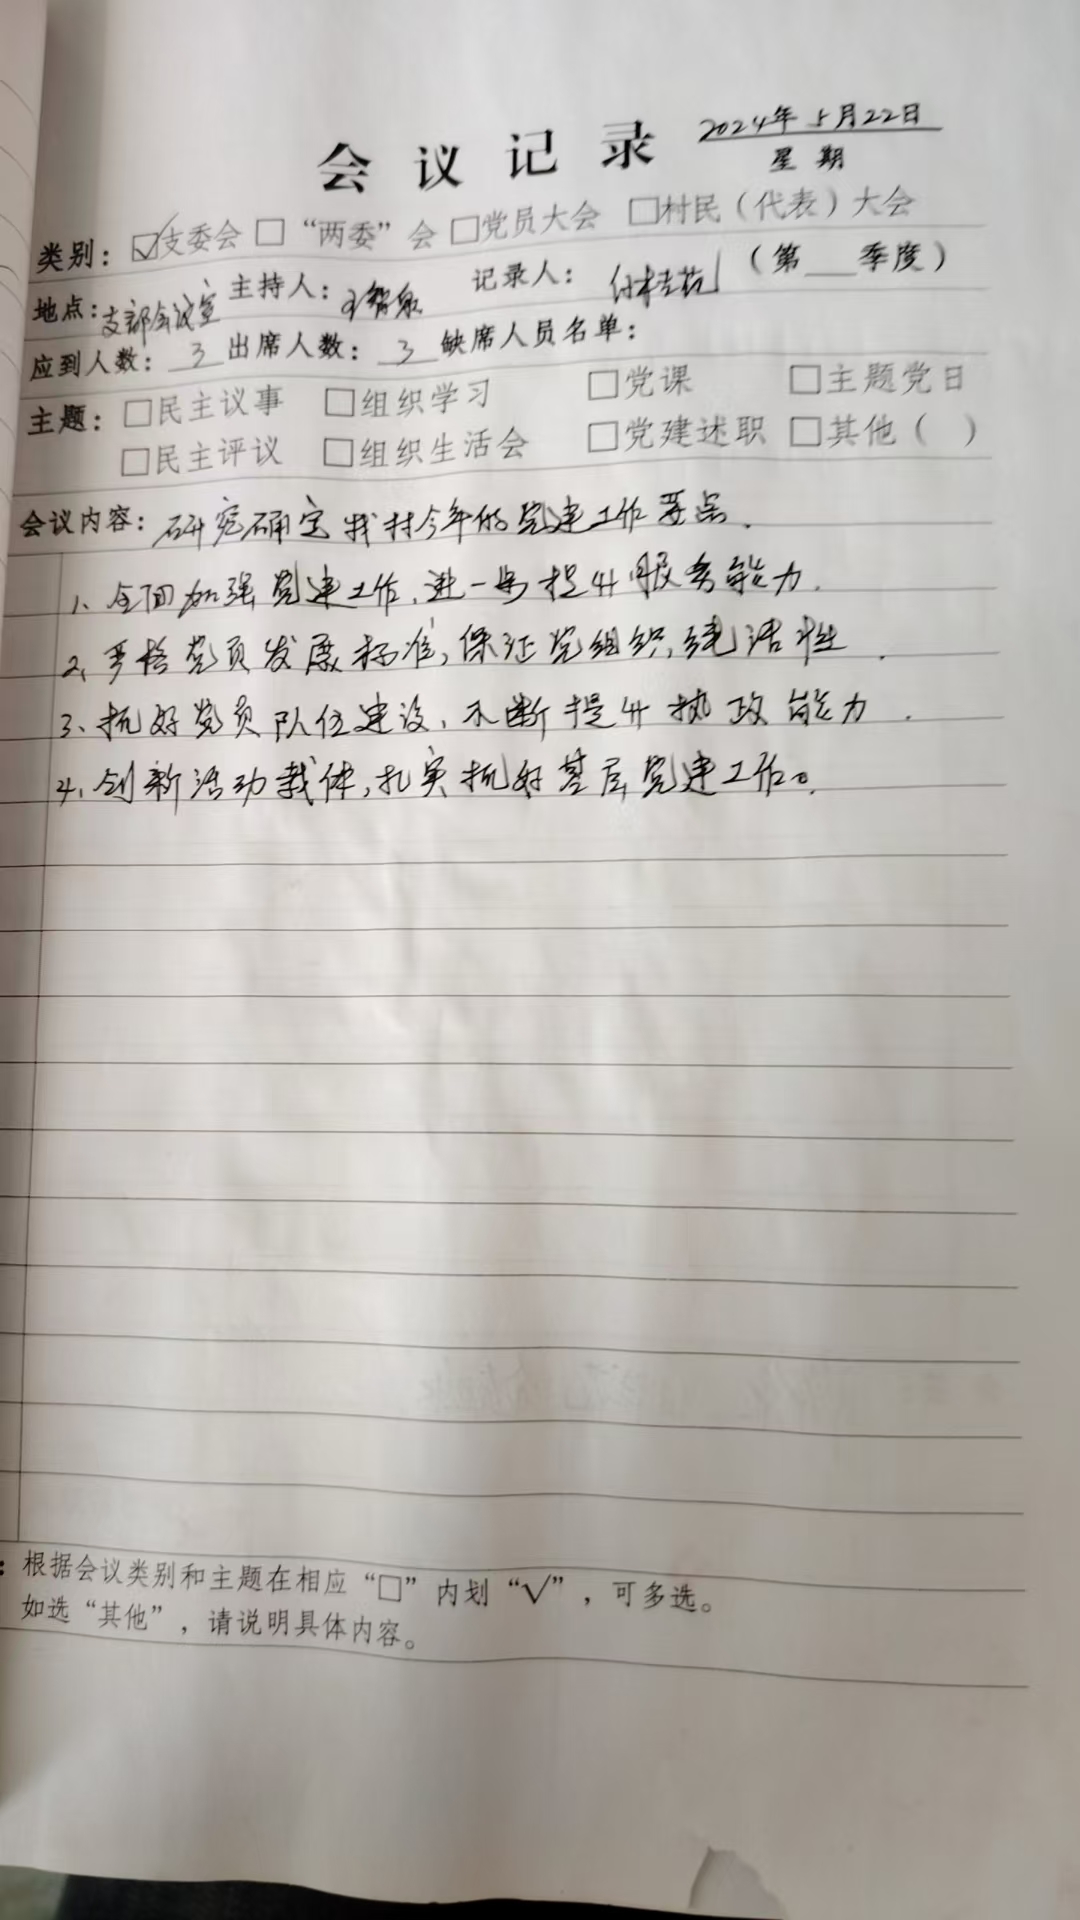 2024年5月22日
会议记录
星期
类别：☑支委会 □“两委”会 □党员大会 □村民（代表）大会
（第__季度）
地点：支部会议室 主持人： 记录人：
应到人数：3 出席人数：3 缺席人员名单：
主题：□民主议事 □组织学习 □党课 □主题党日
□民主评议 □组织生活会 □党建述职 □其他（ ）
会议内容：研究确定我村今年的党建工作要点.
1、全面加强党建工作,进一步提升服务能力.
2、严格党员发展标准,保证党组织纯洁性.
3、抓好党员队伍建设,不断提升执政能力.
4、创新活动载体,扎实抓好基层党建工作。
：根据会议类别和主题在相应“□”内划“√”，可多选。
如选“其他”，请说明具体内容。